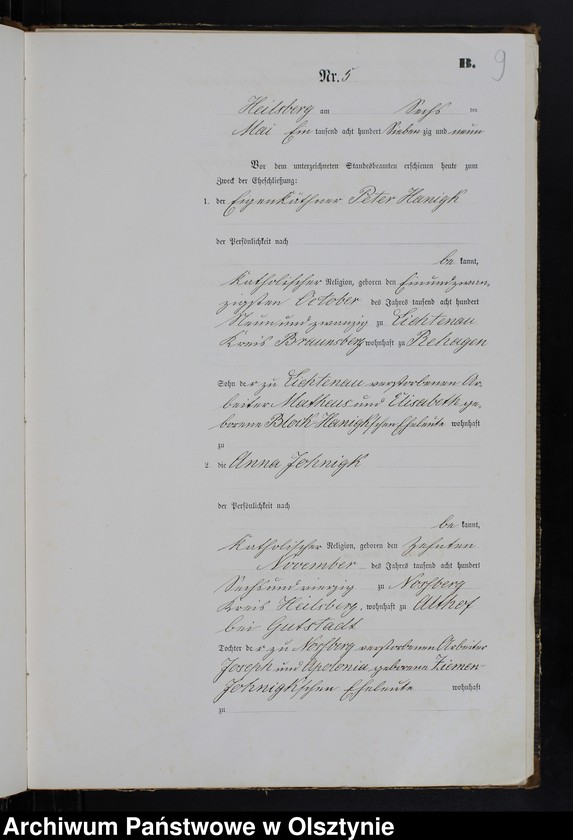 B.
9
Nr. 5
Heilsberg am Sechs ten
Mai Ein tausend acht hundert Sieben zig und neun
Vor dem unterzeichneten Standesbeamten erschienen heute zum
Zweck der Eheschließung:
1. der Eigenkäthner Peter Hanigk
der Persönlichkeit nach
be kannt,
Katholischer Religion, geboren den Einundzwan,
zigsten October des Jahres tausend acht hundert
Neunundzwanzig zu Lichtenau
Kreis Braunsberg wohnhaft zu Rehagen
Sohn der zu Lichtenau verstorbenen Ar,
beiter Matheus und Elisabeth ge,
borene Block Hanigk'schen Eheleute wohnhaft
zu
2. die Anna Johnigk
der Persönlichkeit nach
be kannt,
Katholischer Religion, geboren den zehnten
November des Jahres tausend acht hundert
Sechsundvierzig zu Noßberg
Kreis Heilsberg, wohnhaft zu Althof
bei Gutstadt
Tochter der zu Noßberg verstorbenen Arbeiter
Joseph und Apolonia geborene Ziemen-
Johnigk'schen Eheleute wohnhaft
zu
Archiwum Państwowe w Olsztynie